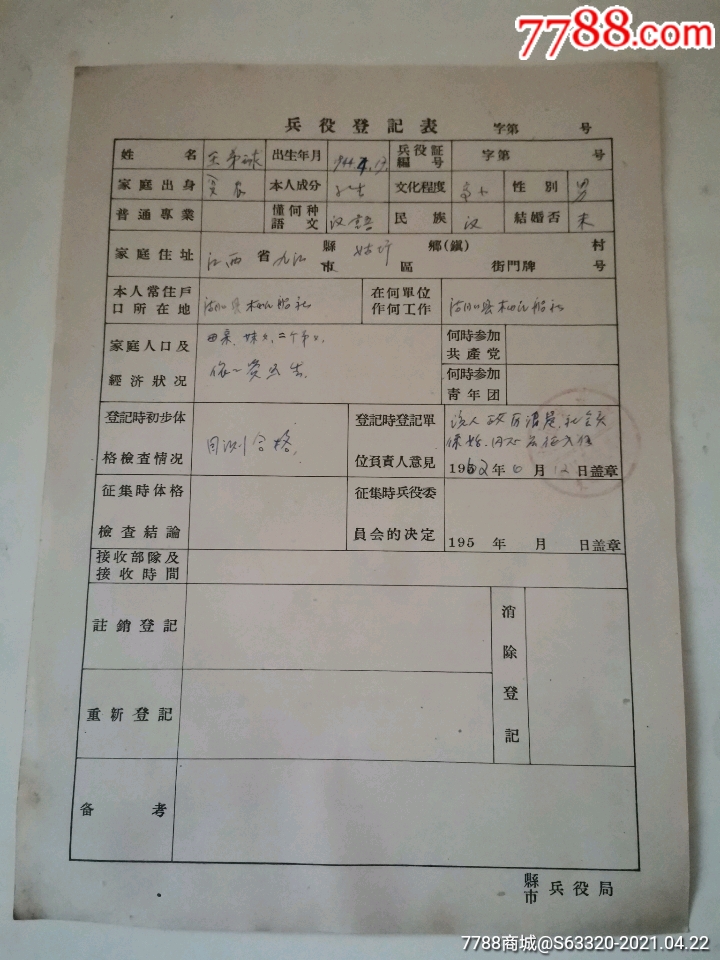 7788.com
兵役登記表 字第 号
姓名 出生年月 1944.4.13 兵役証編号 字第 号
家庭出身 貧农 本人成分 学生 文化程度 高小 性別 男
普通專業 懂何种語文 汉語 民族 汉 結婚否 未
家庭住址 江西省九江縣市 姑圹 鄉(鎮)區 村 街門牌 号
本人常住戶口所在地 在何單位作何工作
家庭人口及經济狀况 母亲、妹 二个弟 何時参加共產党
何時参加青年团
登記時初步体格檢查情况 目测合格 登記時登記單位負責人意見 该人政历清楚,社会关
1962年6月12日盖章
征集時体格檢查結論 征集時兵役委員会的决定 195 年 月 日盖章
接收部隊及接收時間
註銷登記 消除登記
重新登記
备考
縣市兵役局
7788商城@S63320-2021.04.22